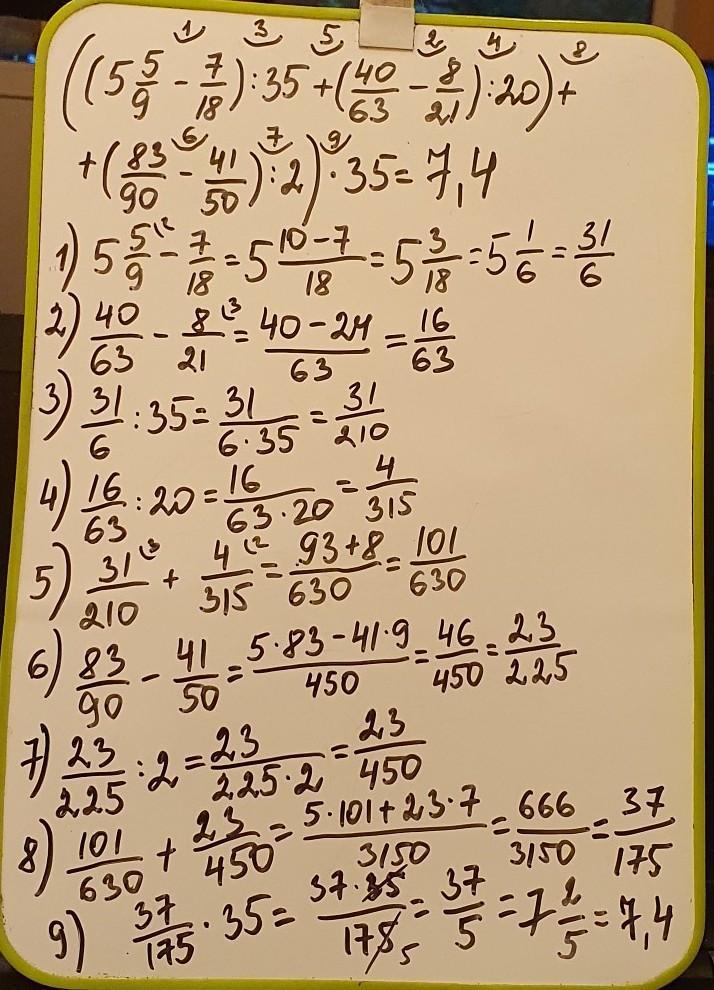 1 3 5 2 4 8
((5 5/9 - 7/18) : 35 + (40/63 - 8/21) : 20) +
6 7 9
+ (83/90 - 41/50) : 2) · 35 = 7,4
1) 5 5/9 ⁽² - 7/18 = 5 10-7/18 = 5 3/18 = 5 1/6 = 31/6
2) 40/63 - 8/21 ⁽³ = 40-24/63 = 16/63
3) 31/6 : 35 = 31/6·35 = 31/210
4) 16/63 : 20 = 16/63·20 = 4/315
5) 31/210 ⁽³ + 4/315 ⁽² = 93+8/630 = 101/630
6) 83/90 - 41/50 = 5·83-41·9/450 = 46/450 = 23/225
7) 23/225 : 2 = 23/225·2 = 23/450
8) 101/630 + 23/450 = 5·101+23·7/3150 = 666/3150 = 37/175
9) 37/175 · 35 = 37·35/175 5 = 37/5 = 7 2/5 = 7,4